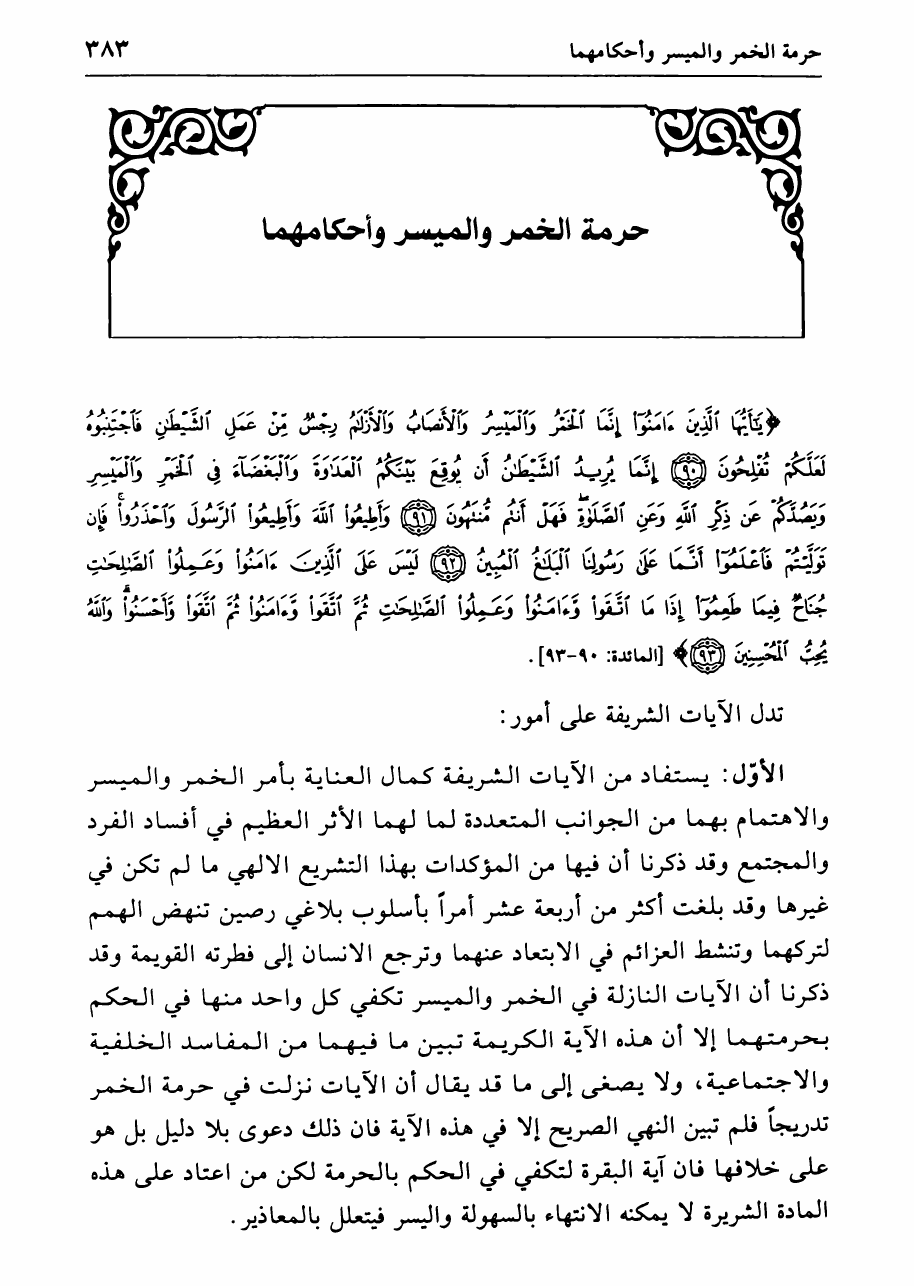 حرمة الخمر والميسر وأحكامهما ٣٨٣
حرمة الخمر والميسر وأحكامهما
﴿يَٰٓأَيُّهَا ٱلَّذِينَ ءَامَنُوٓا۟ إِنَّمَا ٱلْخَمْرُ وَٱلْمَيْسِرُ وَٱلْأَنصَابُ وَٱلْأَزْلَٰمُ رِجْسٌ مِّنْ عَمَلِ ٱلشَّيْطَٰنِ فَٱجْتَنِبُوهُ
لَعَلَّكُمْ تُفْلِحُونَ ﴿٩٠﴾ إِنَّمَا يُرِيدُ ٱلشَّيْطَٰنُ أَن يُوقِعَ بَيْنَكُمُ ٱلْعَدَٰوَةَ وَٱلْبَغْضَآءَ فِى ٱلْخَمْرِ وَٱلْمَيْسِرِ
وَيَصُدَّكُمْ عَن ذِكْرِ ٱللَّهِ وَعَنِ ٱلصَّلَوٰةِ ۖ فَهَلْ أَنتُم مُّنتَهُونَ ﴿٩١﴾ وَأَطِيعُوا۟ ٱللَّهَ وَأَطِيعُوا۟ ٱلرَّسُولَ وَٱحْذَرُوا۟ ۚ فَإِن
تَوَلَّيْتُمْ فَٱعْلَمُوٓا۟ أَنَّمَا عَلَىٰ رَسُولِنَا ٱلْبَلَٰغُ ٱلْمُبِينُ ﴿٩٢﴾ لَيْسَ عَلَى ٱلَّذِينَ ءَامَنُوا۟ وَعَمِلُوا۟ ٱلصَّٰلِحَٰتِ
جُنَاحٌ فِيمَا طَعِمُوٓا۟ إِذَا مَا ٱتَّقَوا۟ وَّءَامَنُوا۟ وَعَمِلُوا۟ ٱلصَّٰلِحَٰتِ ثُمَّ ٱتَّقَوا۟ وَّءَامَنُوا۟ ثُمَّ ٱتَّقَوا۟ وَّأَحْسَنُوا۟ ۗ وَٱللَّهُ
يُحِبُّ ٱلْمُحْسِنِينَ ﴿٩٣﴾﴾ [المائدة: ٩٠-٩٣].
تدل الآيات الشريفة على أمور:
الأوّل: يستفاد من الآيات الشريفة كمال العناية بأمر الخمر والميسر
والاهتمام بهما من الجوانب المتعددة لما لهما الأثر العظيم في أفساد الفرد
والمجتمع وقد ذكرنا أن فيها من المؤكدات بهذا التشريع الالهي ما لم تكن في
غيرها وقد بلغت أكثر من أربعة عشر أمراً بأسلوب بلاغي رصين تنهض الهمم
لتركهما وتنشط العزائم في الابتعاد عنهما وترجع الانسان إلى فطرته القويمة وقد
ذكرنا أن الآيات النازلة في الخمر والميسر تكفي كل واحد منها في الحكم
بحرمتهما إلا أن هذه الآية الكريمة تبين ما فيهما من المفاسد الخلفية
والاجتماعية، ولا يصغى إلى ما قد يقال أن الآيات نزلت في حرمة الخمر
تدريجاً فلم تبين النهي الصريح إلا في هذه الآية فان ذلك دعوى بلا دليل بل هو
على خلافها فان آية البقرة لتكفي في الحكم بالحرمة لكن من اعتاد على هذه
المادة الشريرة لا يمكنه الانتهاء بالسهولة واليسر فيتعلل بالمعاذير.